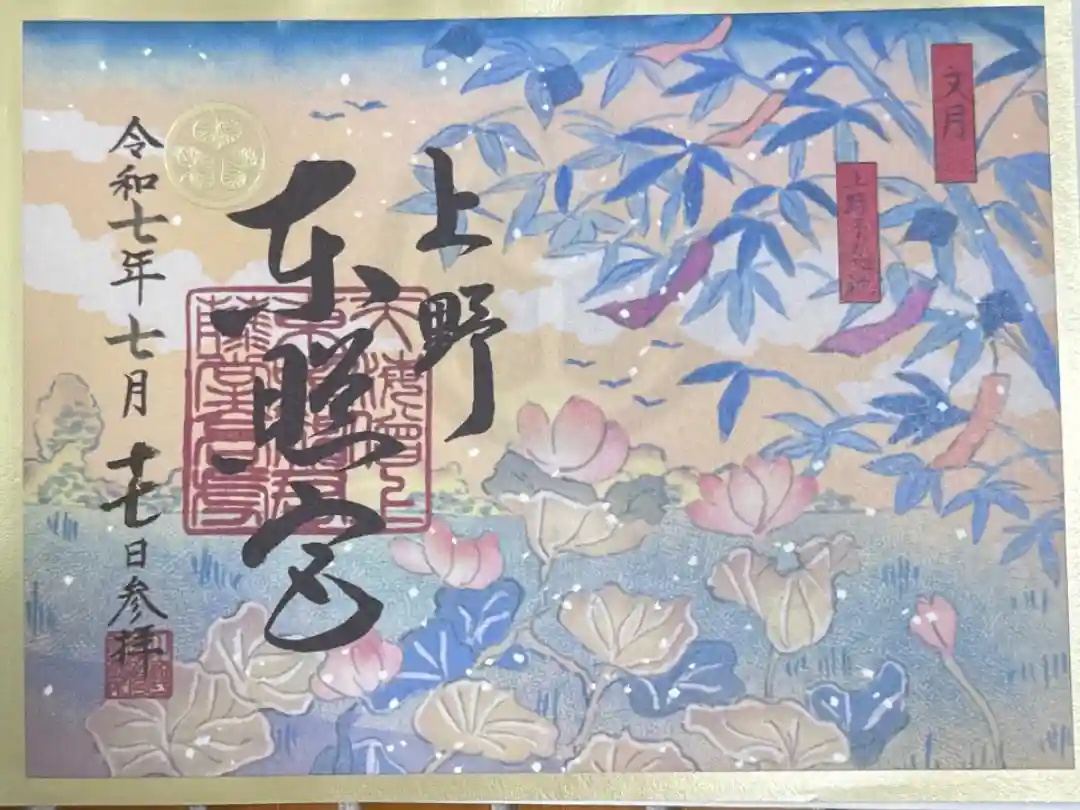 文月
上野不忍池
上野
東照宮
令和七年七月十七日参拝